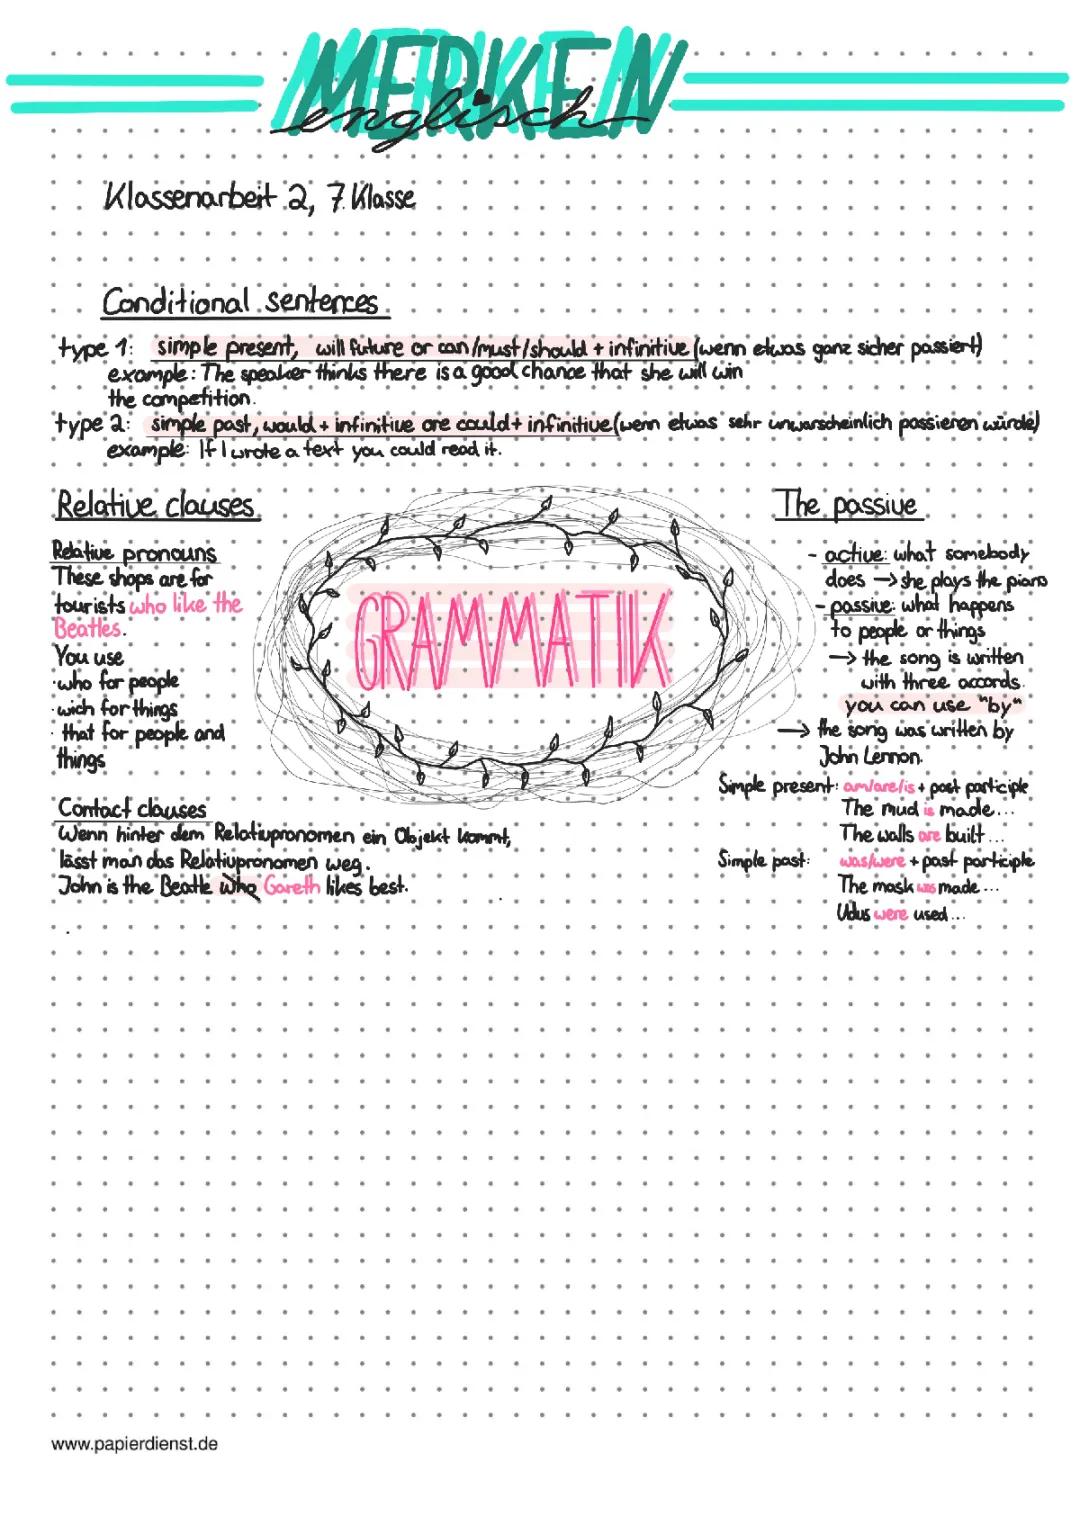 MERKEN
englisch
Klassenarbeit 2, 7. Klasse
Conditional sentences
type 1: simple present, will future or can/must/should + infinitive (wenn etwas ganz sicher passiert)
example: The speaker thinks there is a good chance that she will win
the competition.
type 2: simple past, would + infinitive ore could + infinitive (wenn etwas sehr unwarscheinlich passieren würde)
example: If I wrote a text you could read it.
Relative clauses
Relative pronouns
These shops are for
tourists who like the
Beatles.
You use
·who for people
·wich for things
·that for people and
things
Contact clauses
Wenn hinter dem Relativpronomen ein Objekt kommt,
lässt man das Relativpronomen weg.
John is the Beatle who Gareth likes best.
GRAMMATIK
The passive
- active: what somebody
does → she plays the piano
- passive: what happens
to people or things
→ the song is written
with three accords.
you can use "by"
→ the song was written by
John Lennon.
Simple present: am/are/is + past participle
The mud is made...
The walls are built...
Simple past: was/were + past participle
The mask was made...
Udus were used...
www.papierdienst.de